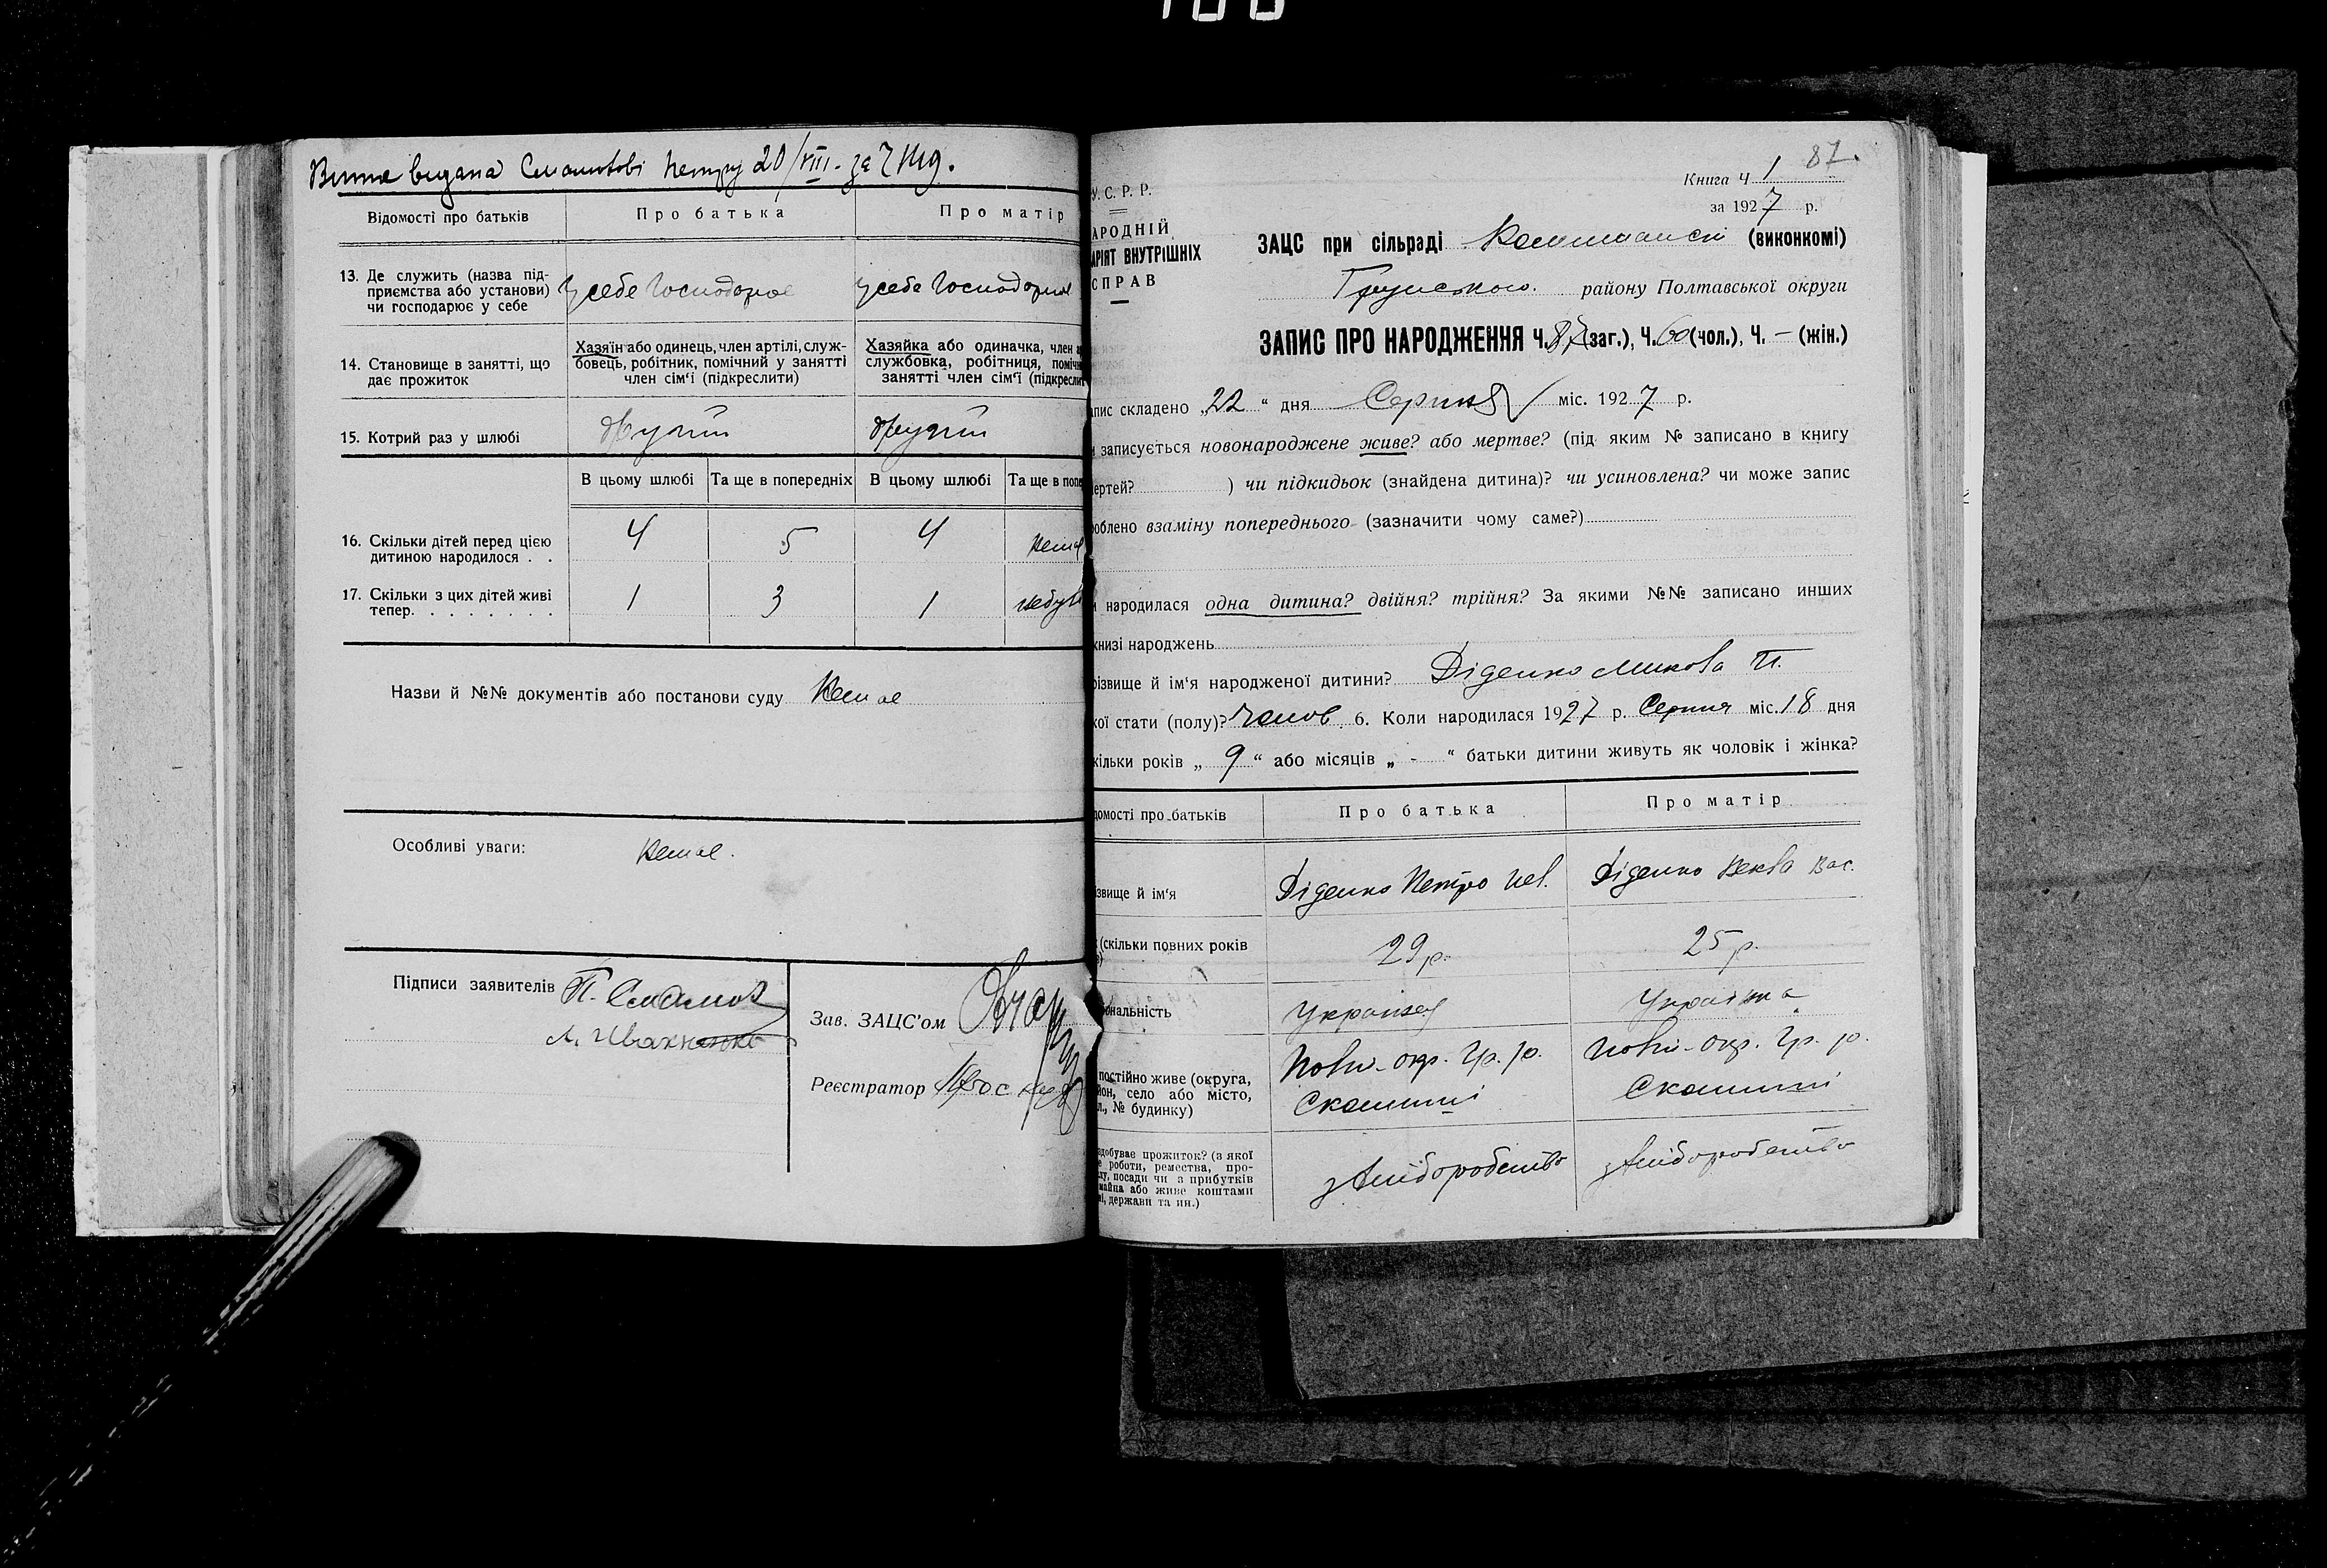 видана Смаглові Петру 20/VIII - за
Відомості про батьків
Про батька
Про матір
13. Де служить (назва під-
приємства або установи)
чи господарює у себе
у себе Господарює
у себе Господарює
14. Становище в занятті, що
дає прожиток
Хазяїн або одинець, член артілі, служ-
бовець, робітник, помічний у занятті
член сім'ї (підкреслити)
Хазяйка або одиначка, член
службовка, робітниця,
занятті член сім'ї
15. Котрий раз у шлюбі
другий
другий
В цьому шлюбі
Та ще в попередніх
В цьому шлюбі
Та ще в
16. Скільки дітей перед цією
дитиною народилося . .
4
5
4
немає
17. Скільки з цих дітей живі
тепер. . . . . . . .
1
3
1
Назви й №№ документів або постанови суду Немає
Особливі уваги: немає.
Підписи заявителів П.
Зав. ЗАЦС'ом
Реєстратор
87.
Книга Ч 1
за 1927 р.
У. С. Р. Р.
АРОДНІЙ
АРІЯТ ВНУТРІШНІХ
СПРАВ
ЗАЦС при сільраді (виконкомі)
Грунського району Полтавської округи
ЗАПИС ПРО НАРОДЖЕННЯ Ч. 87 (заг.), Ч. 60 (чол.), Ч. — (жін.)
пис складено „22“ дня Серпня міс. 1927 р.
записується новонароджене живе? або мертве? (під яким № записано в книгу
ертей? ) чи підкидьок (знайдена дитина)? чи усиновлена? чи може запис
облено взаміну попереднього (зазначити чому саме?)
народилася одна дитина? двійня? трійня? За якими №№ записано инших
книзі народжень
різвище й ім'я народженої дитини? Діденко Микола П.
кої стати (полу)? чолов 6. Коли народилася 1927 р. Серпня міс. 18 дня
кільки років „9“ або місяців „-“ батьки дитини живуть як чоловік і жінка?
домості про батьків
Про батька
Про матір
звище й ім'я
Діденко Петро
Діденко Вас.
(скільки повних років
29 р.
25 р.
ональність
Українець
Українка
постійно живе (округа,
йон, село або місто,
№ будинку)
окр. Гр. р.
окр. Гр. р.
здобуває прожиток? (з якої
роботи, ремества, про-
у, посади чи з прибутків
майна або живе коштами
і, держави та ин.)
з хліборобства
з хліборобства